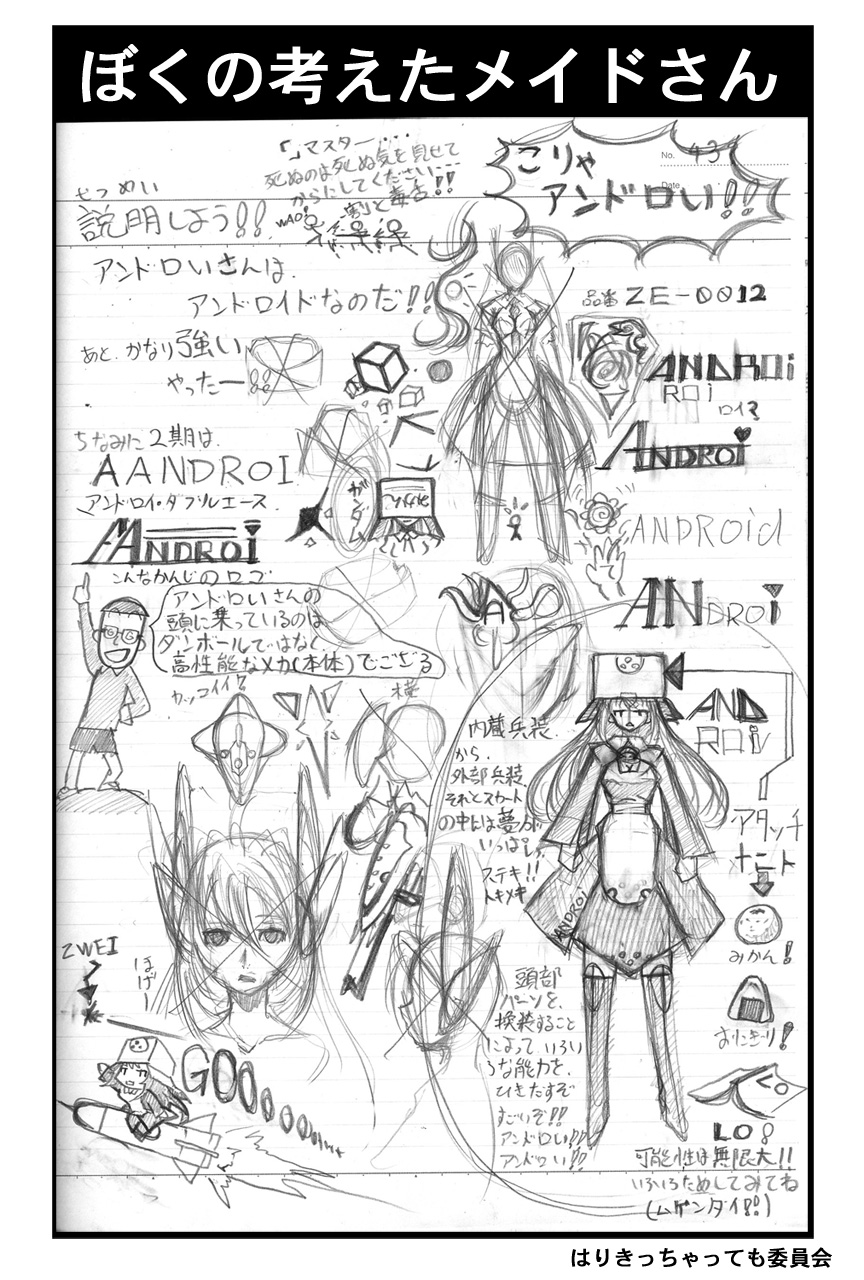 ぼくの考えたメイドさん
「」マスター・・・
死ぬのは死ぬ気を見せて
からにしてください・・・
割と毒舌!!
WAO!
No. 43
Date
こりゃ
アンドロい!!
せつめい
説明しよう!!
アンドロいさんは
アンドロイドなのだ!!
あと、かなり強い
やったー!!
ちなみに2期は
AANDROI
アンドロイ・ダブルエース
AANDROI
こんなかんじのロゴ
アンドロいさんの
頭に乗っているのは
ダンボールではなく
高性能なメカ(本体)でござる
カッコイイ?
ガンダム
品番 ZE-0012
ANDROi
ROi
ロイヤ
ANDROI
ANDROid
ANDROi
AND
ROiV
内蔵兵装
から、
外部兵装、
それとスカート
の中は夢が
いっぱい
ステキ!!
トキメキ
ANDROi
アタッチ
メント
みかん!
おにぎり!
LO8
可能性は無限大!!
いろいろためしてみてね
(ムゲンダイ!?)
頭部
パーツを、
換装すること
によって、いろい
ろな能力を、
ひきだすぞ
すごいぞ!!
アンドロい!!
アンドロい!!
ZWEI
ほげー
GOOOOOO
はりきっちゃっても委員会